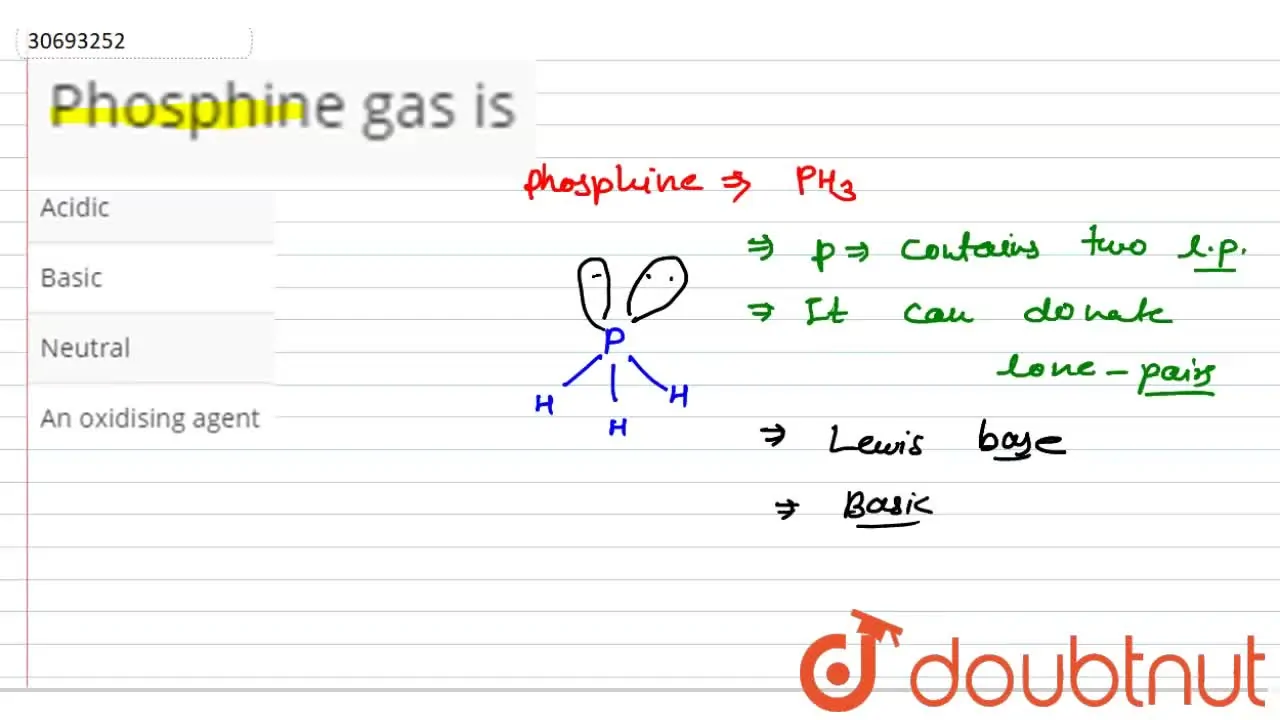 30693252
Phosphine gas is
Acidic
Basic
Neutral
An oxidising agent
phosphine ⇒ PH3
⇒ P ⇒ contains two l.p.
⇒ It can donate
lone-pairs
⇒ Lewis base
⇒ Basic
P
H
H
H
doubtnut